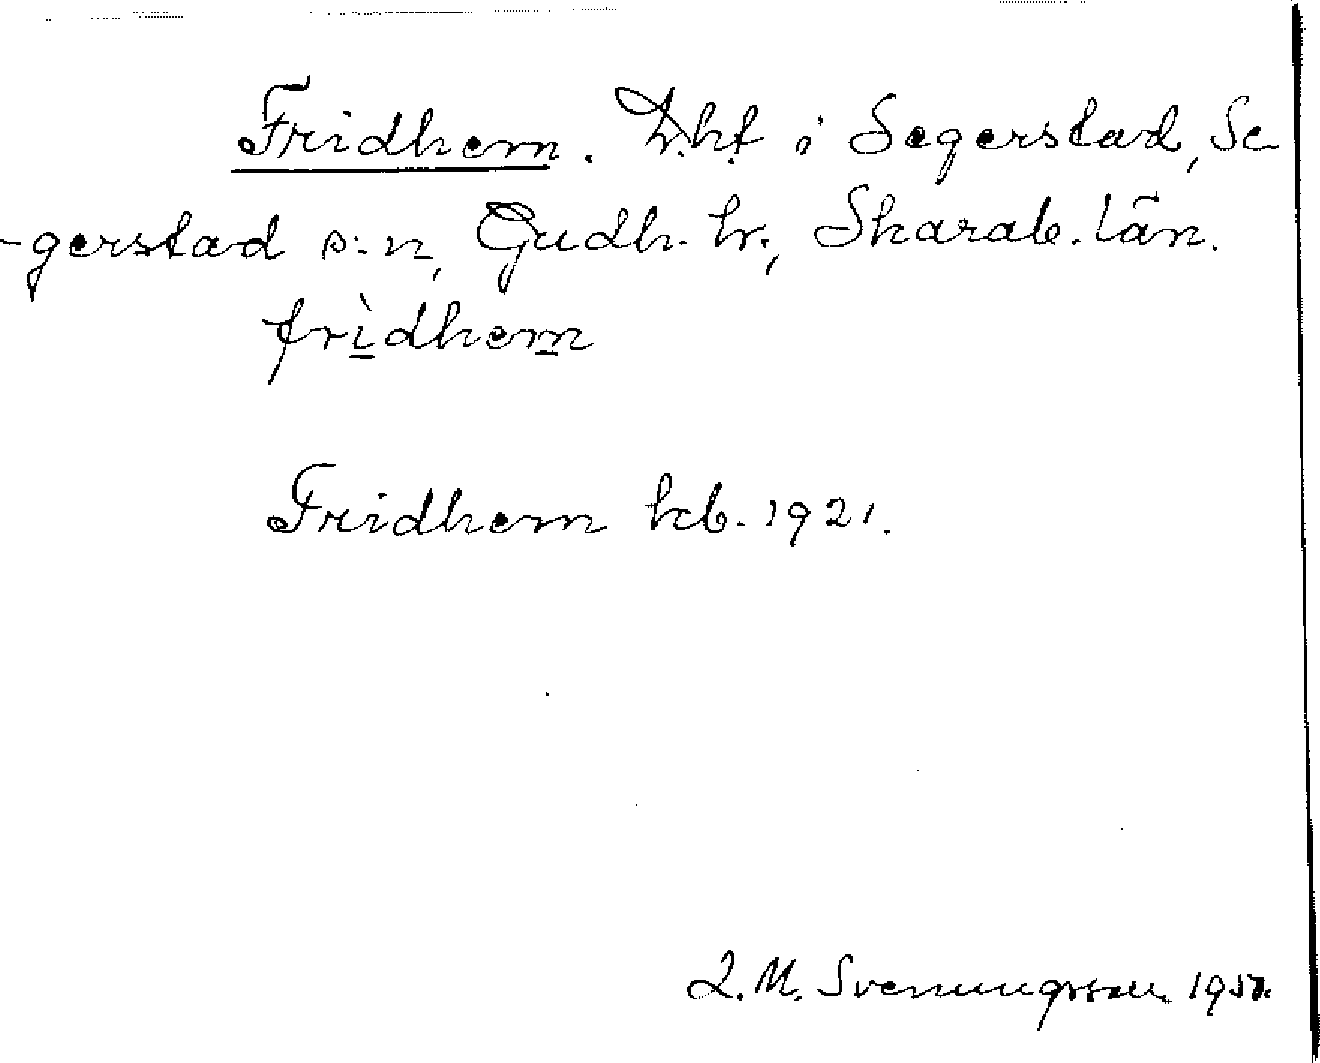 Fridhem. D.ht i Segerstad, Se
-gerstad s:n, Gudh. hr., Skarab. län.
frìdhem
Fridhem kb. 1921.
L. M. Svenungsson 1957.